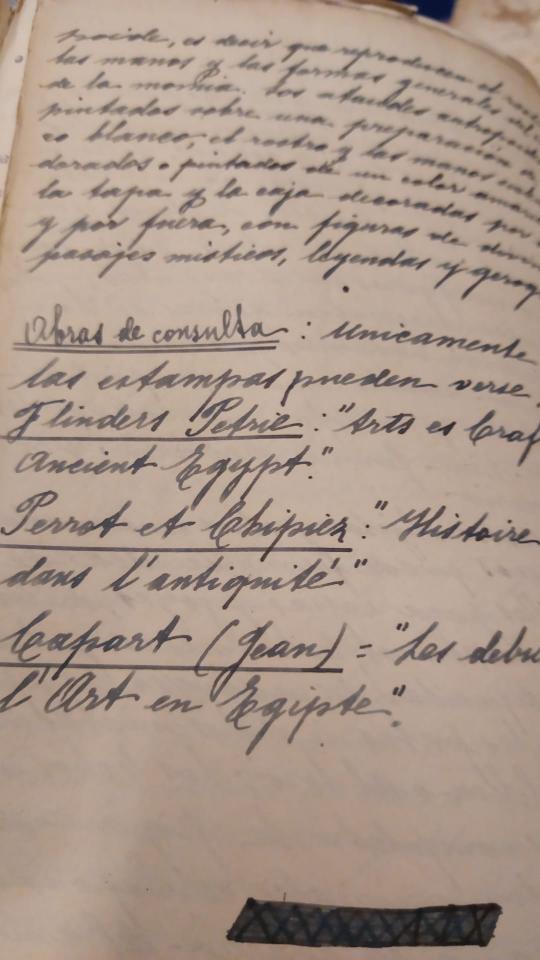 poide, es decir que reproducen el
las manos y las formas generales
de la momia. Los ataudes
pintados sobre una preparación
co blanco, el rostro y las manos
dorados o pintados de un color
la tapa y la caja decoradas por
y por fuera, con figuras de
pasajes misticos, leyendas y gerog
Obras de consulta : Unicamente
las estampas pueden verse
Flinders Petrie : "Arts es Craf
Ancient Egypt."
Perrot et Chipiez : "Histoire
dans l'antiquité"
Capart (Jean) = "Les debu
l'Art en Egipte".